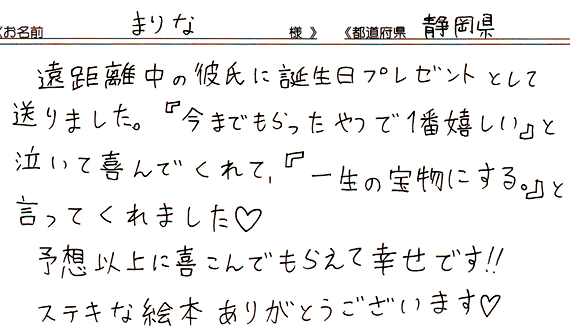 《お名前 まりな 様 》 《都道府県 静岡県
遠距離中の彼氏に誕生日プレゼントとして
送りました。『今までもらったやつで1番嬉しい』と
泣いて喜んでくれて、『一生の宝物にする。』と
言ってくれました♡
予想以上に喜こんでもらえて幸せです!!
ステキな絵本ありがとうございます♡